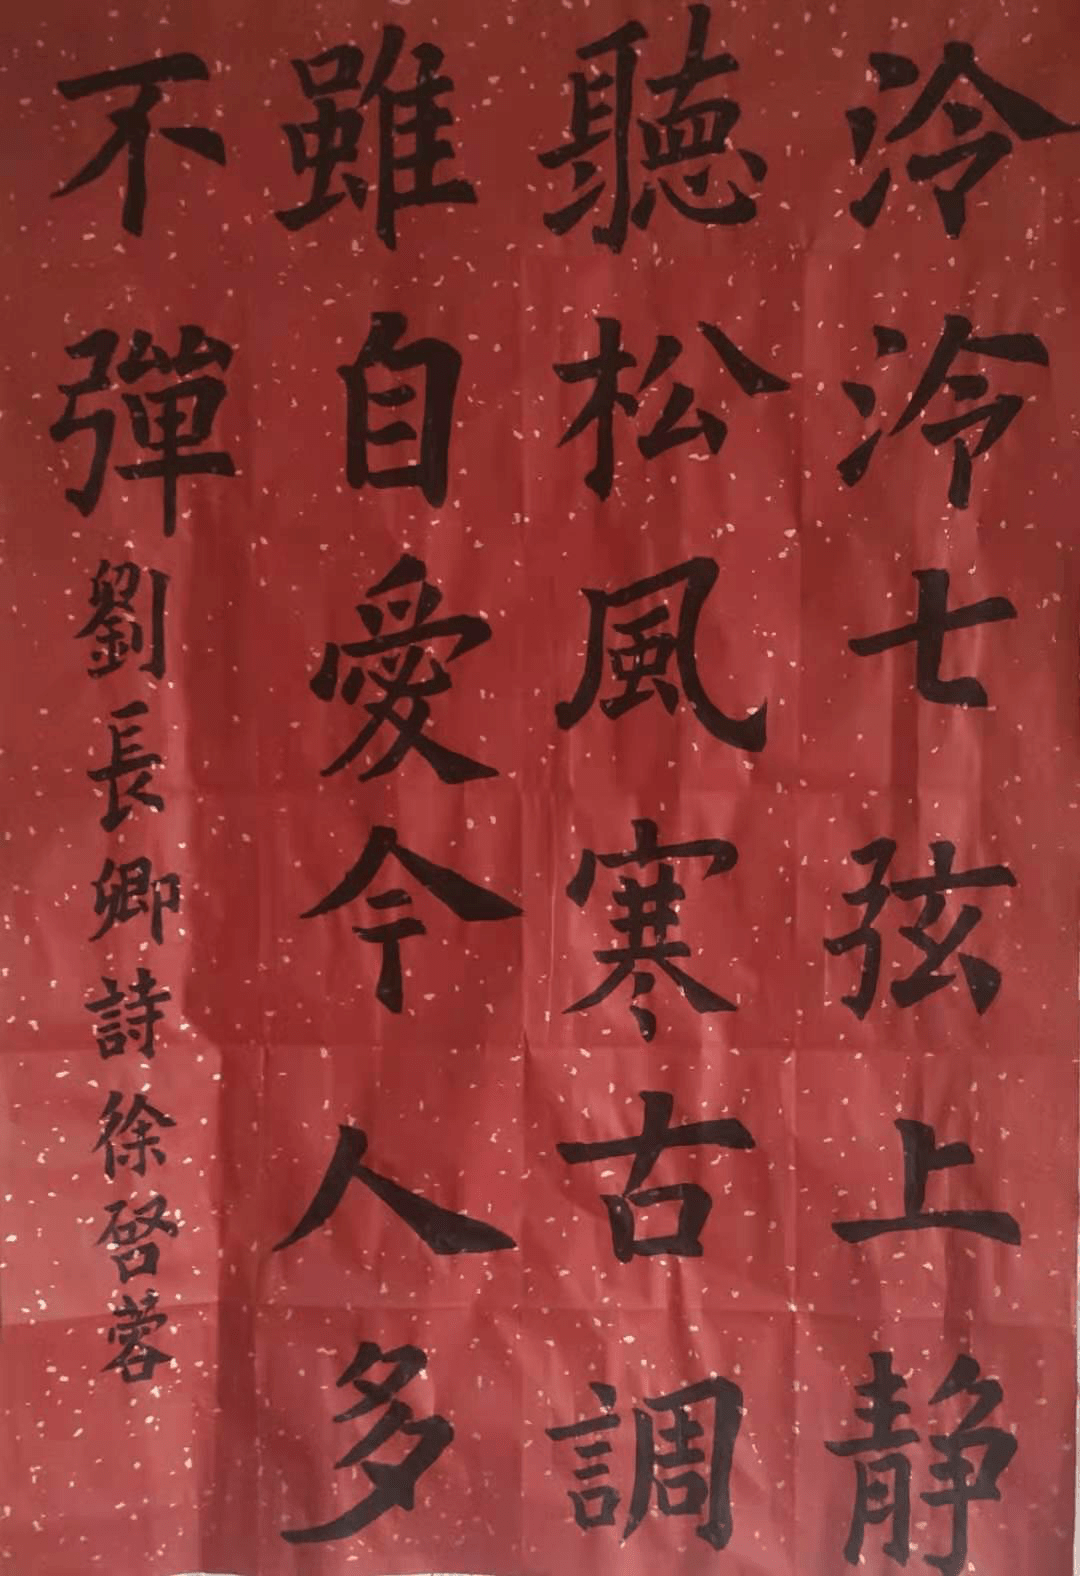 泠泠七弦上静
聽松風寒古調
雖自愛今人多
不彈劉長卿詩徐啓蓉